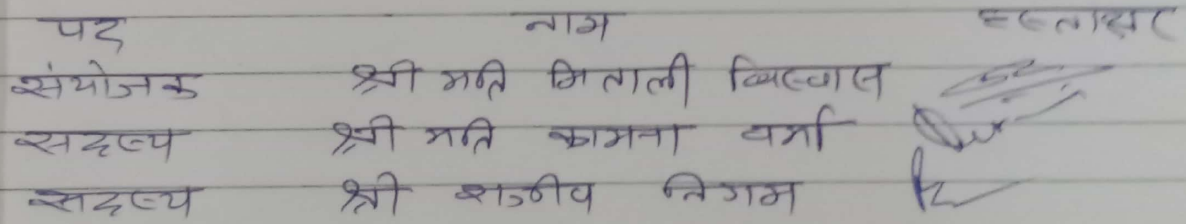 पद नाम हस्ताक्षर
संयोजक श्री मति मिताली विस्वास
सदस्य श्री मति कामना वर्मा
सदस्य श्री राजीव निगम